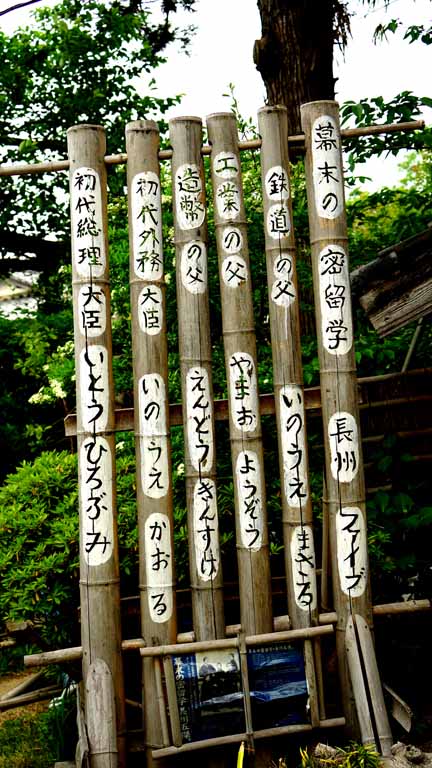 幕末の密留学 長州ファイブ
鉄道の父 いのうえまさる
工業の父 やまおようぞう
造幣の父 えんどうきんすけ
初代外務大臣 いのうえかおる
初代総理大臣 いとうひろぶみ